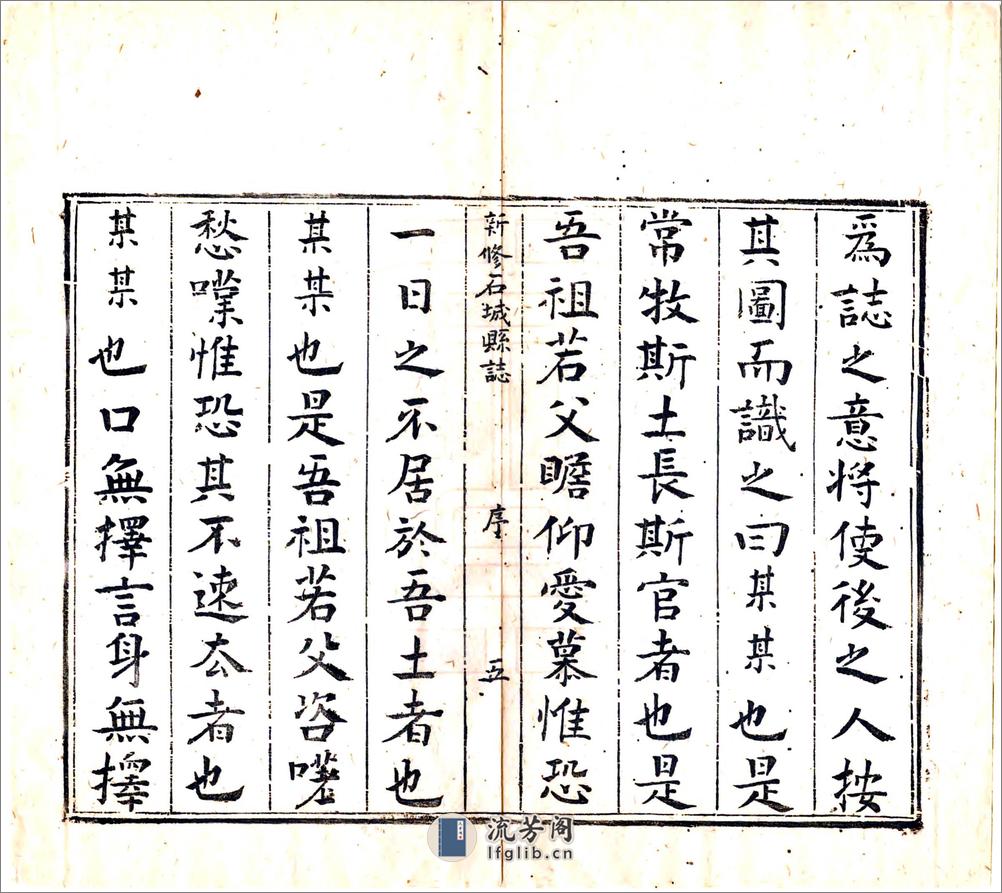 爲誌之意將使後之人按
其圖而識之曰某某也是
常牧斯土長斯官者也是
吾祖若父瞻仰愛慕惟恐
新修石城縣誌 序 五
一日之不居於吾土者也
某某也是吾祖若父咨嗟
愁嘆惟恐其不速去者也
某某也口無擇言身無擇
流芳阁
lfglib.cn